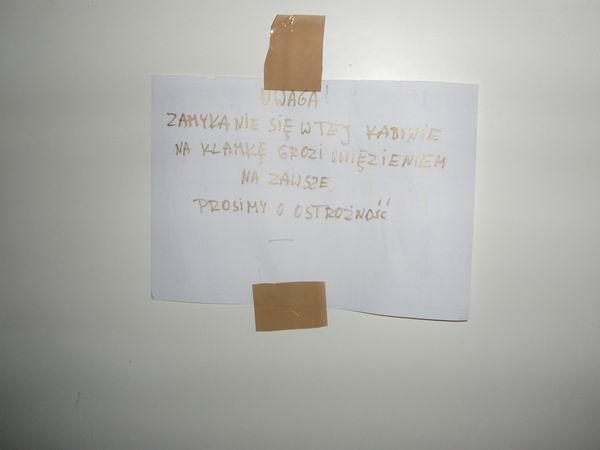 UWAGA!
ZAMYKANIE SIĘ W TEJ KABINIE
NA KLAMKĘ GROZI UWIĘZIENIEM
NA ZAWSZE
PROSIMY O OSTROŻNOŚĆ